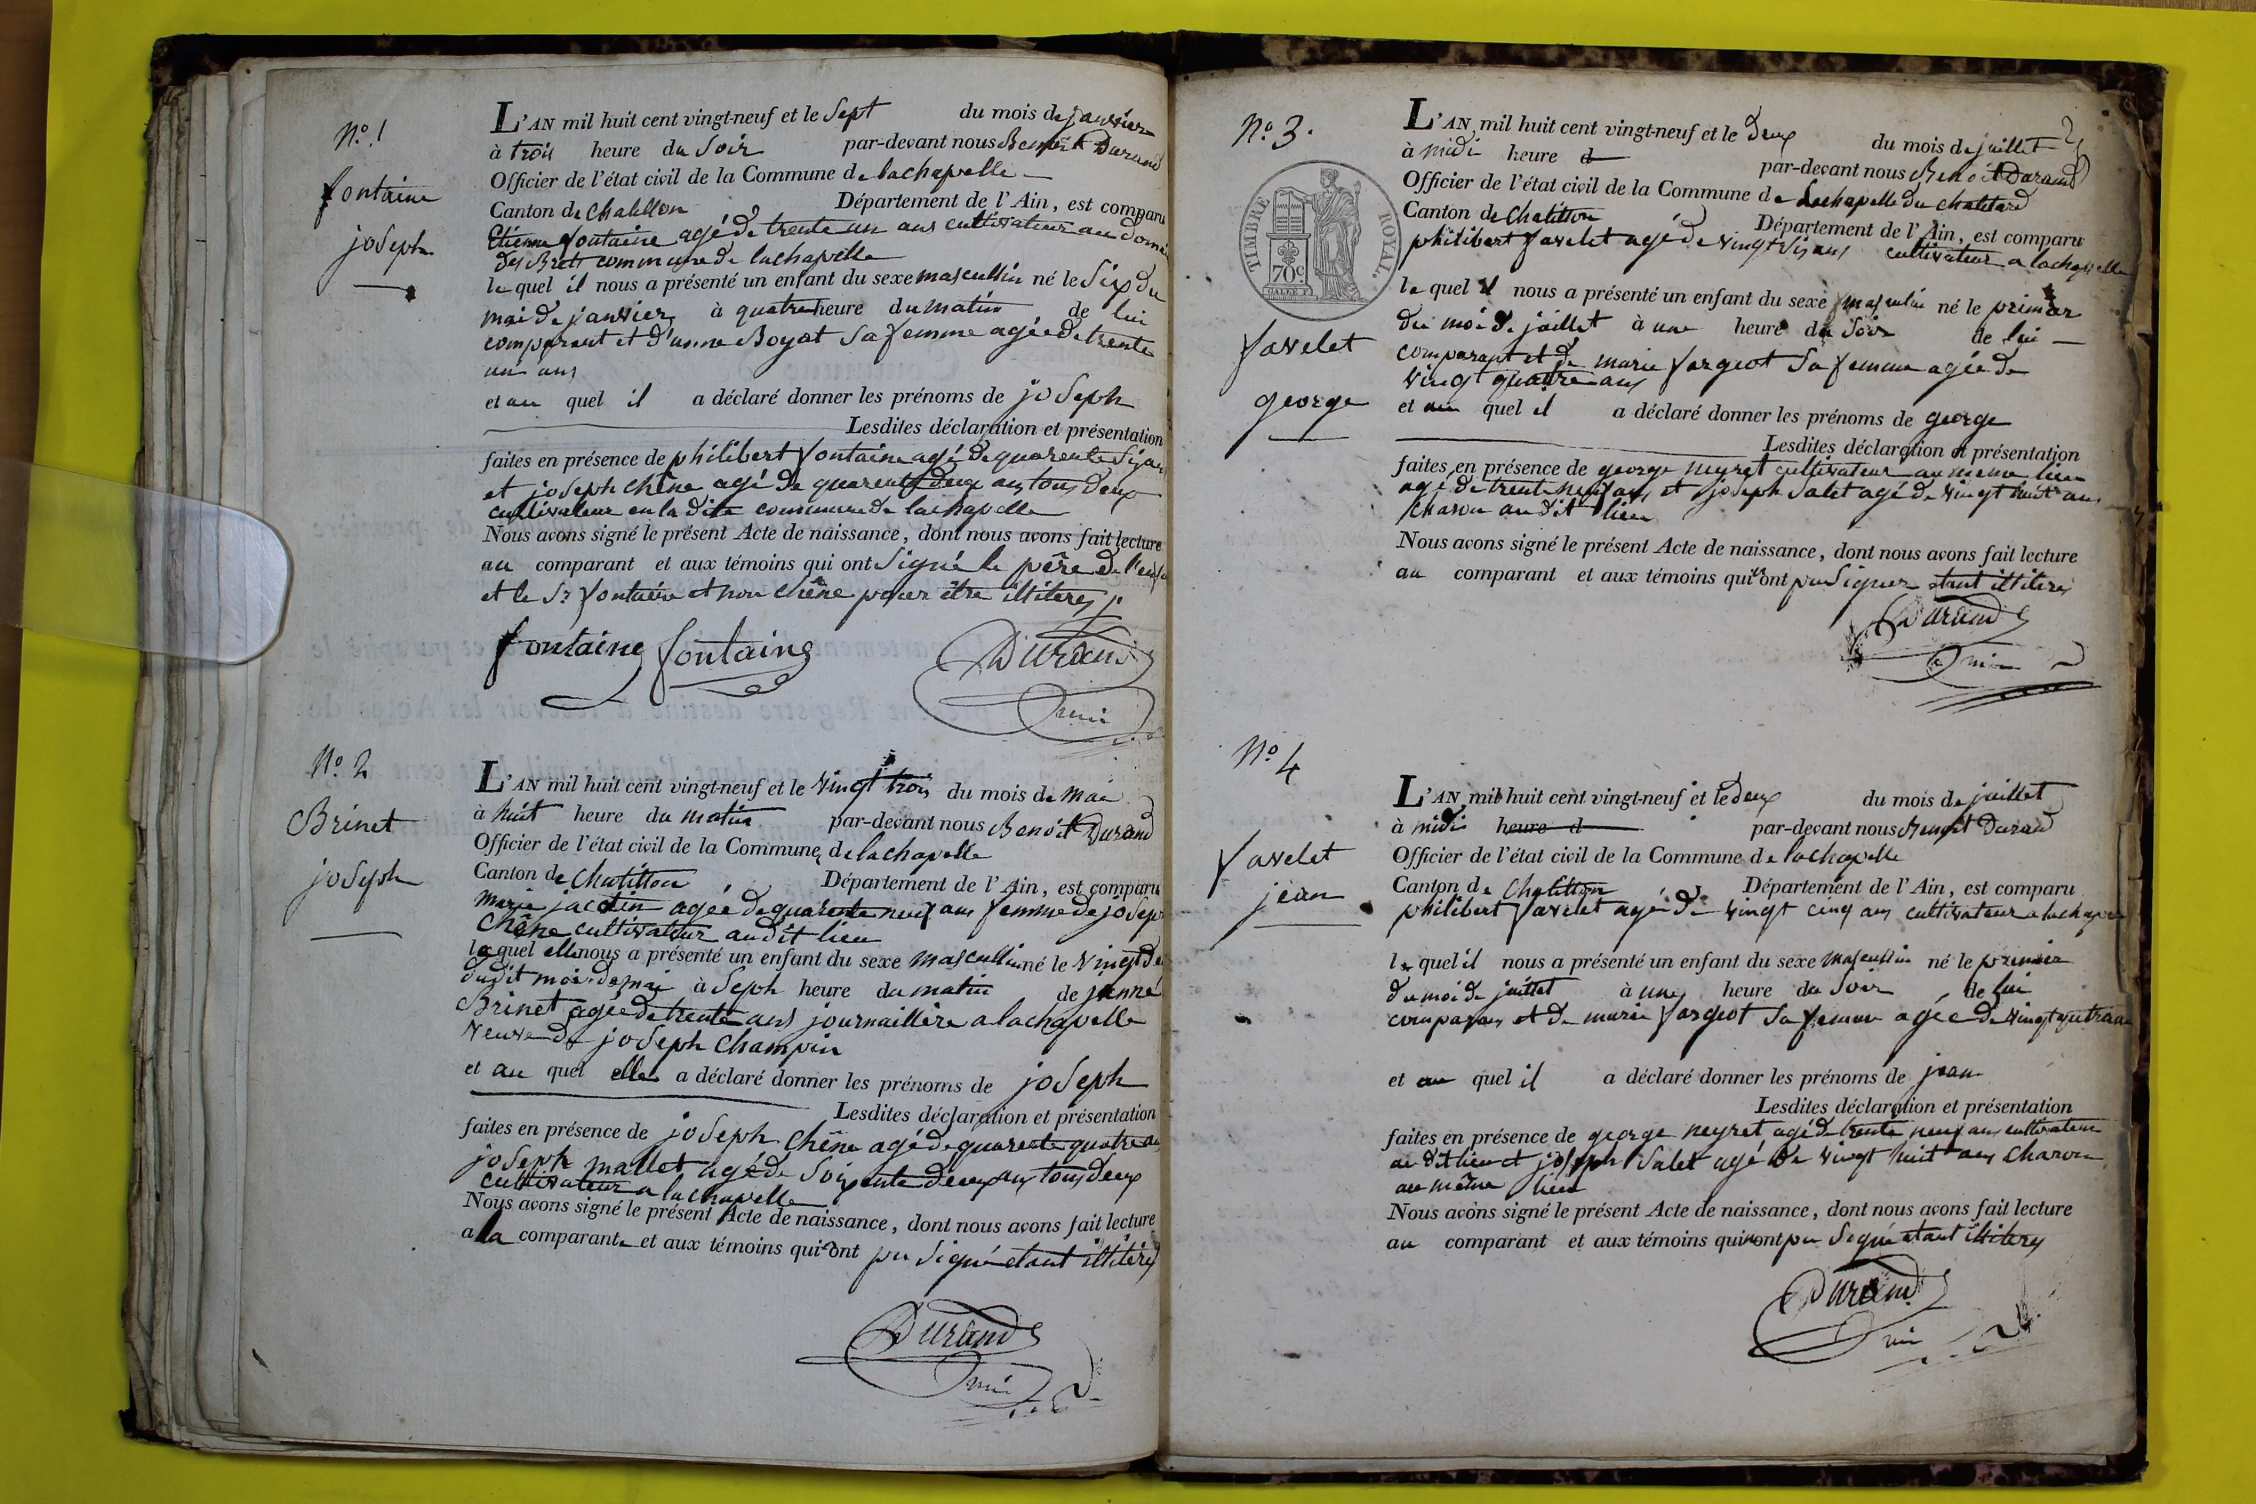 N.º 1
fontaine
joseph
L'AN mil huit cent vingt-neuf et le Sept du mois de janvier
à trois heure du Soir par-devant nous Benoit Durand
Officier de l'état civil de la Commune de lachapelle
Canton de chatillon Département de l'Ain, est comparu
Etienne fontaine agé de trente un ans cultivateur au
des Bret commune de lachapelle
le quel il nous a présenté un enfant du sexe mascullin né le Six du
moi de janvier à quatre heure du matin de lui
comparant et d'anne Boyat Sa femme agée de trente
un ans
et au quel il a déclaré donner les prénoms de joseph
Lesdites déclaration et présentation
faites en présence de philibert fontaine agé de quarente Six
et joseph chêne agé de quarente deux ans tous deux
cultivateur en la dite commune de lachapelle
Nous avons signé le présent Acte de naissance, dont nous avons fait lecture
au comparant et aux témoins qui ont Signé le père de
et le Sr fontaine et non chêne pour être illiterés
fontaine fontaine Durand
N.º 2
Brinet
joseph
L'AN mil huit cent vingt-neuf et le vingt trois du mois de mai
à huit heure du matin par-devant nous Benoit Durand
Officier de l'état civil de la Commune de lachapelle
Canton de Chatillon Département de l'Ain, est comparu
marie agée de quarente neuf ans femme de joseph
Chêne cultivateur audit lieu
la quel elle nous a présenté un enfant du sexe mascullin né le vingt
dudit moi de mai à Seph heure du matin de janne
Brinet agée de trente ans journaillère a lachapelle
veuve de joseph champin
et au quel elle a déclaré donner les prénoms de joseph
Lesdites déclaration et présentation
faites en présence de joseph Chêne agé de quarente quatre
joseph mallet agé de Soixente deux ans tous deux
cultivateur a lachapelle
Nous avons signé le présent Acte de naissance, dont nous avons fait lecture
a la comparante et aux témoins qui n'ont pu Signé etant illitéré
Durand
N.º 3.
TIMBRE ROYAL.
70c
favelet
george
L'AN mil huit cent vingt-neuf et le deux du mois de juillet
à midi heure d par-devant nous Benoit Durand
Officier de l'état civil de la Commune de Lachapelle du chatelard
Canton de Chatillon Département de l'Ain, est comparu
philibert favelet agé de vingt Six ans cultivateur a lachapelle
le quel il nous a présenté un enfant du sexe masculin né le primier
du moi de juillet à une heure du Soir de lui
comparant et de marie fargeot Sa femme agée de
vingt quatre ans
et au quel il a déclaré donner les prénoms de george
Lesdites déclaration et présentation
faites en présence de george neyret cultivateur au meme lieu
agé de trente neuf ans et joseph Salet agé de vingt huit ans
charon au dit lieu
Nous avons signé le présent Acte de naissance, dont nous avons fait lecture
au comparant et aux témoins qui n'ont pu Signer etant illiteres
Durand
N.º 4
favelet
jean
L'AN mil huit cent vingt-neuf et le deux du mois de juillet
à midi heure d par-devant nous Benoit Durand
Officier de l'état civil de la Commune de lachapelle
Canton de Chatillon Département de l'Ain, est comparu
philibert favelet agé de vingt cinq ans cultivateur a
le quel il nous a présenté un enfant du sexe mascullin né le primier
du moi de juillet à une heure du Soir de lui
comparant et de marie fargeot Sa femme agée de vingt
et au quel il a déclaré donner les prénoms de jean
Lesdites déclaration et présentation
faites en présence de george neyret agé de trente neuf ans cultivateur
au dit lieu et joseph Salet agé de vingt huit ans Charon
au même lieu
Nous avons signé le présent Acte de naissance, dont nous avons fait lecture
au comparant et aux témoins qui n'ont pu Signé etant illiterés
Durand